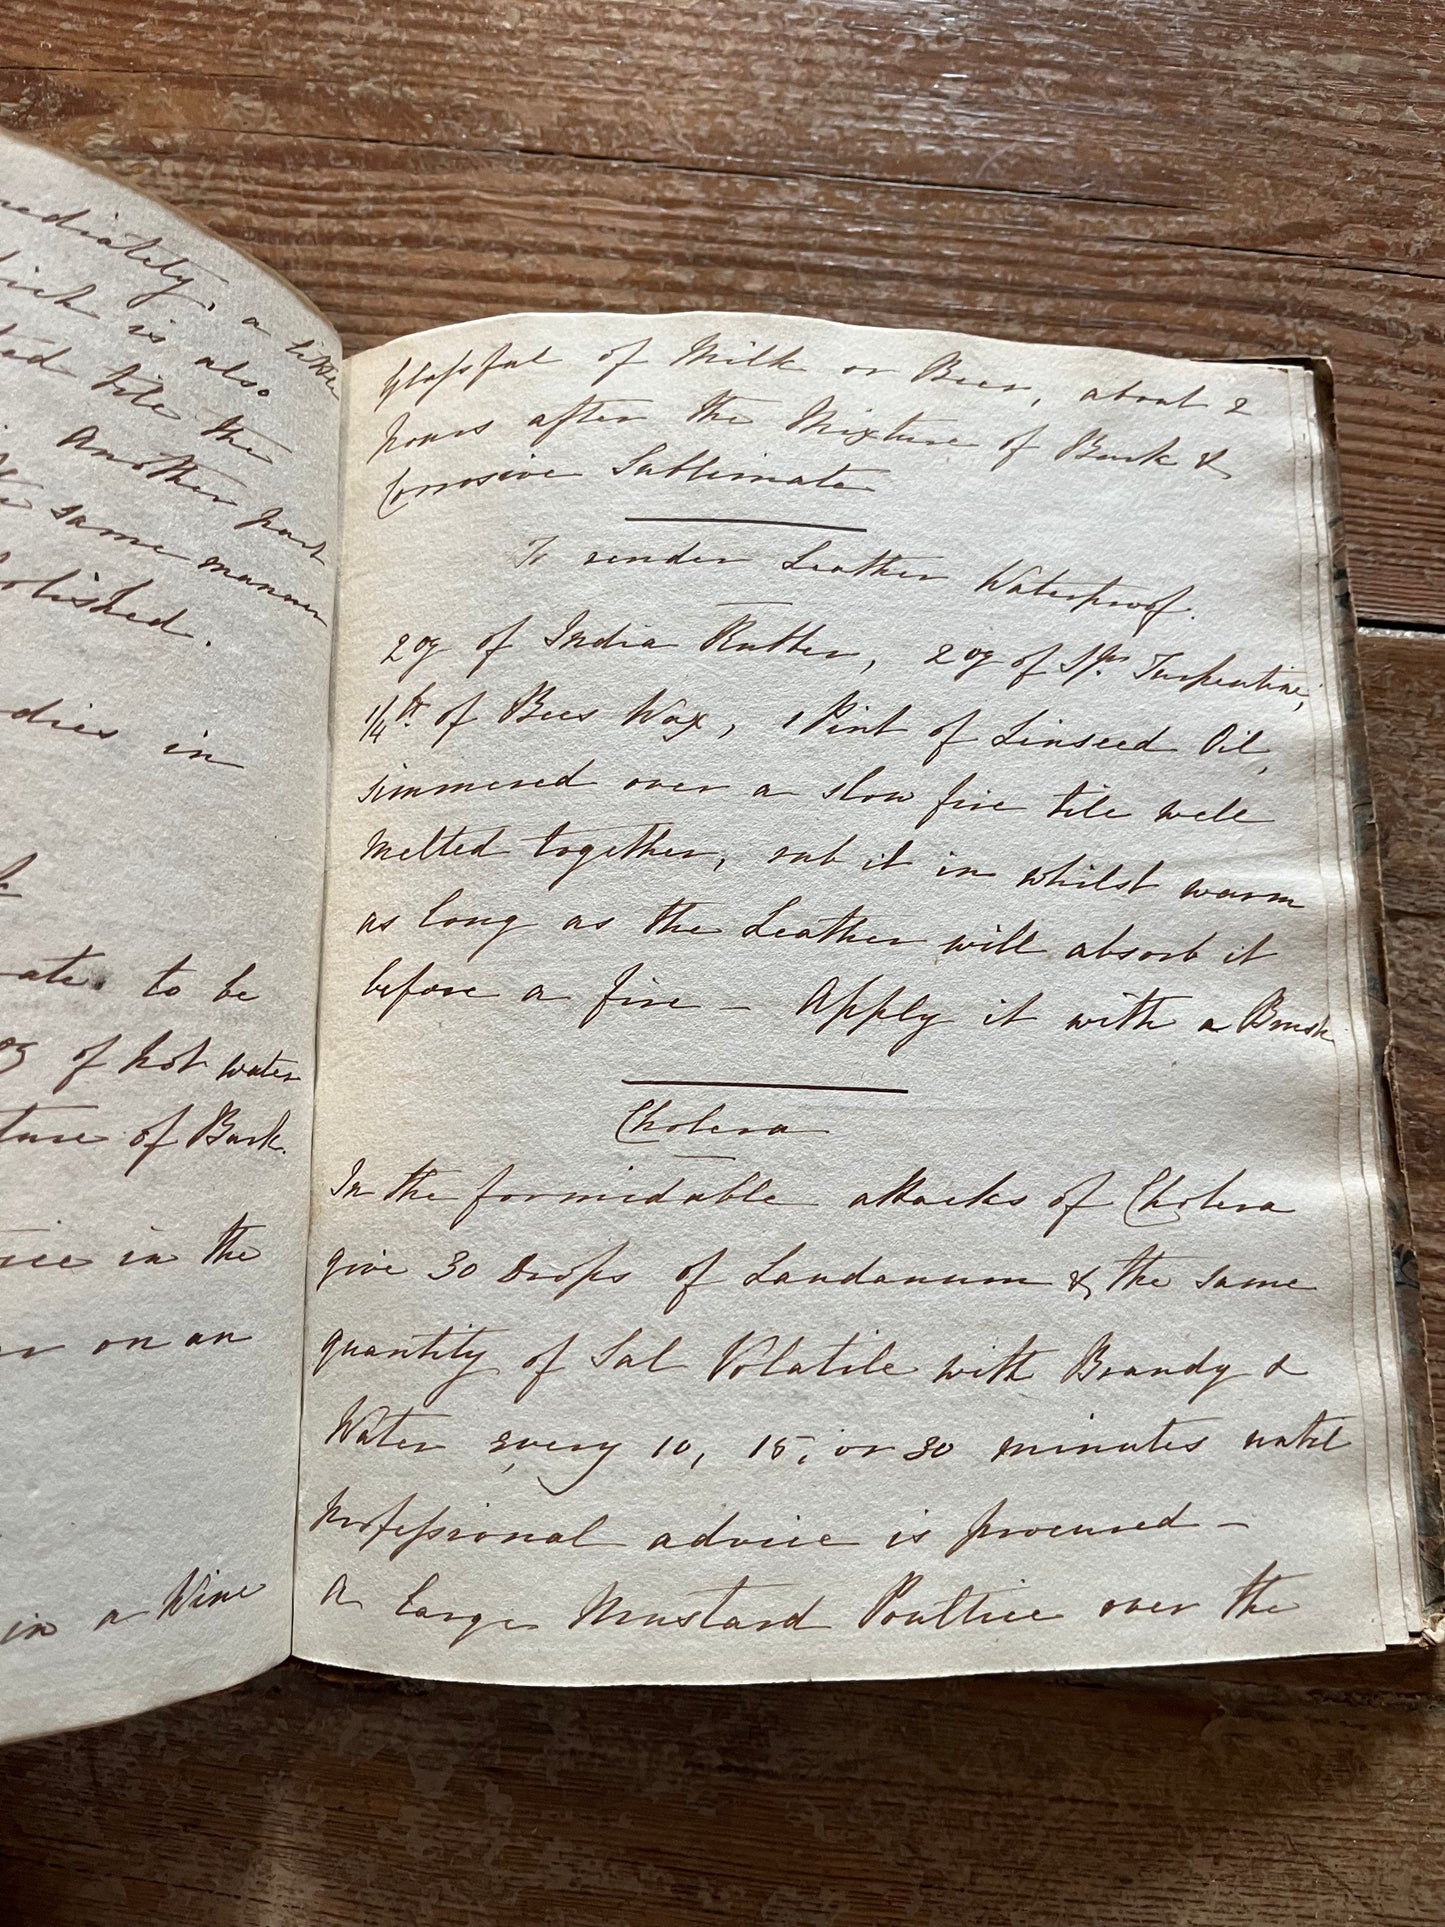 mediately, a like
which is also
ted till the
Another part
same manner
polished.
dies in
ate. to be
oz of hot water
ture of Bark.
in the
on an
in a Wine
Glassful of Milk or Beer, about 2
hours after the Mixture of Bark &
Corrosive Sublimate
To render Leather Waterproof.
2 oz of India Rubber, 2 oz of Sps. Turpentine,
1/4 lb. of Bees Wax, 1 Pint of Linseed Oil,
simmered over a slow fire till well
melted together, rub it in whilst warm
as long as the Leather will absorb it
before a fire — Apply it with a Brush
Cholera
In the formidable attacks of Cholera
give 30 Drops of Laudanum & the same
quantity of Sal Volatile with Brandy &
Water every 10, 15, or 30 minutes until
professional advice is procured —
A large Mustard Poultice over the